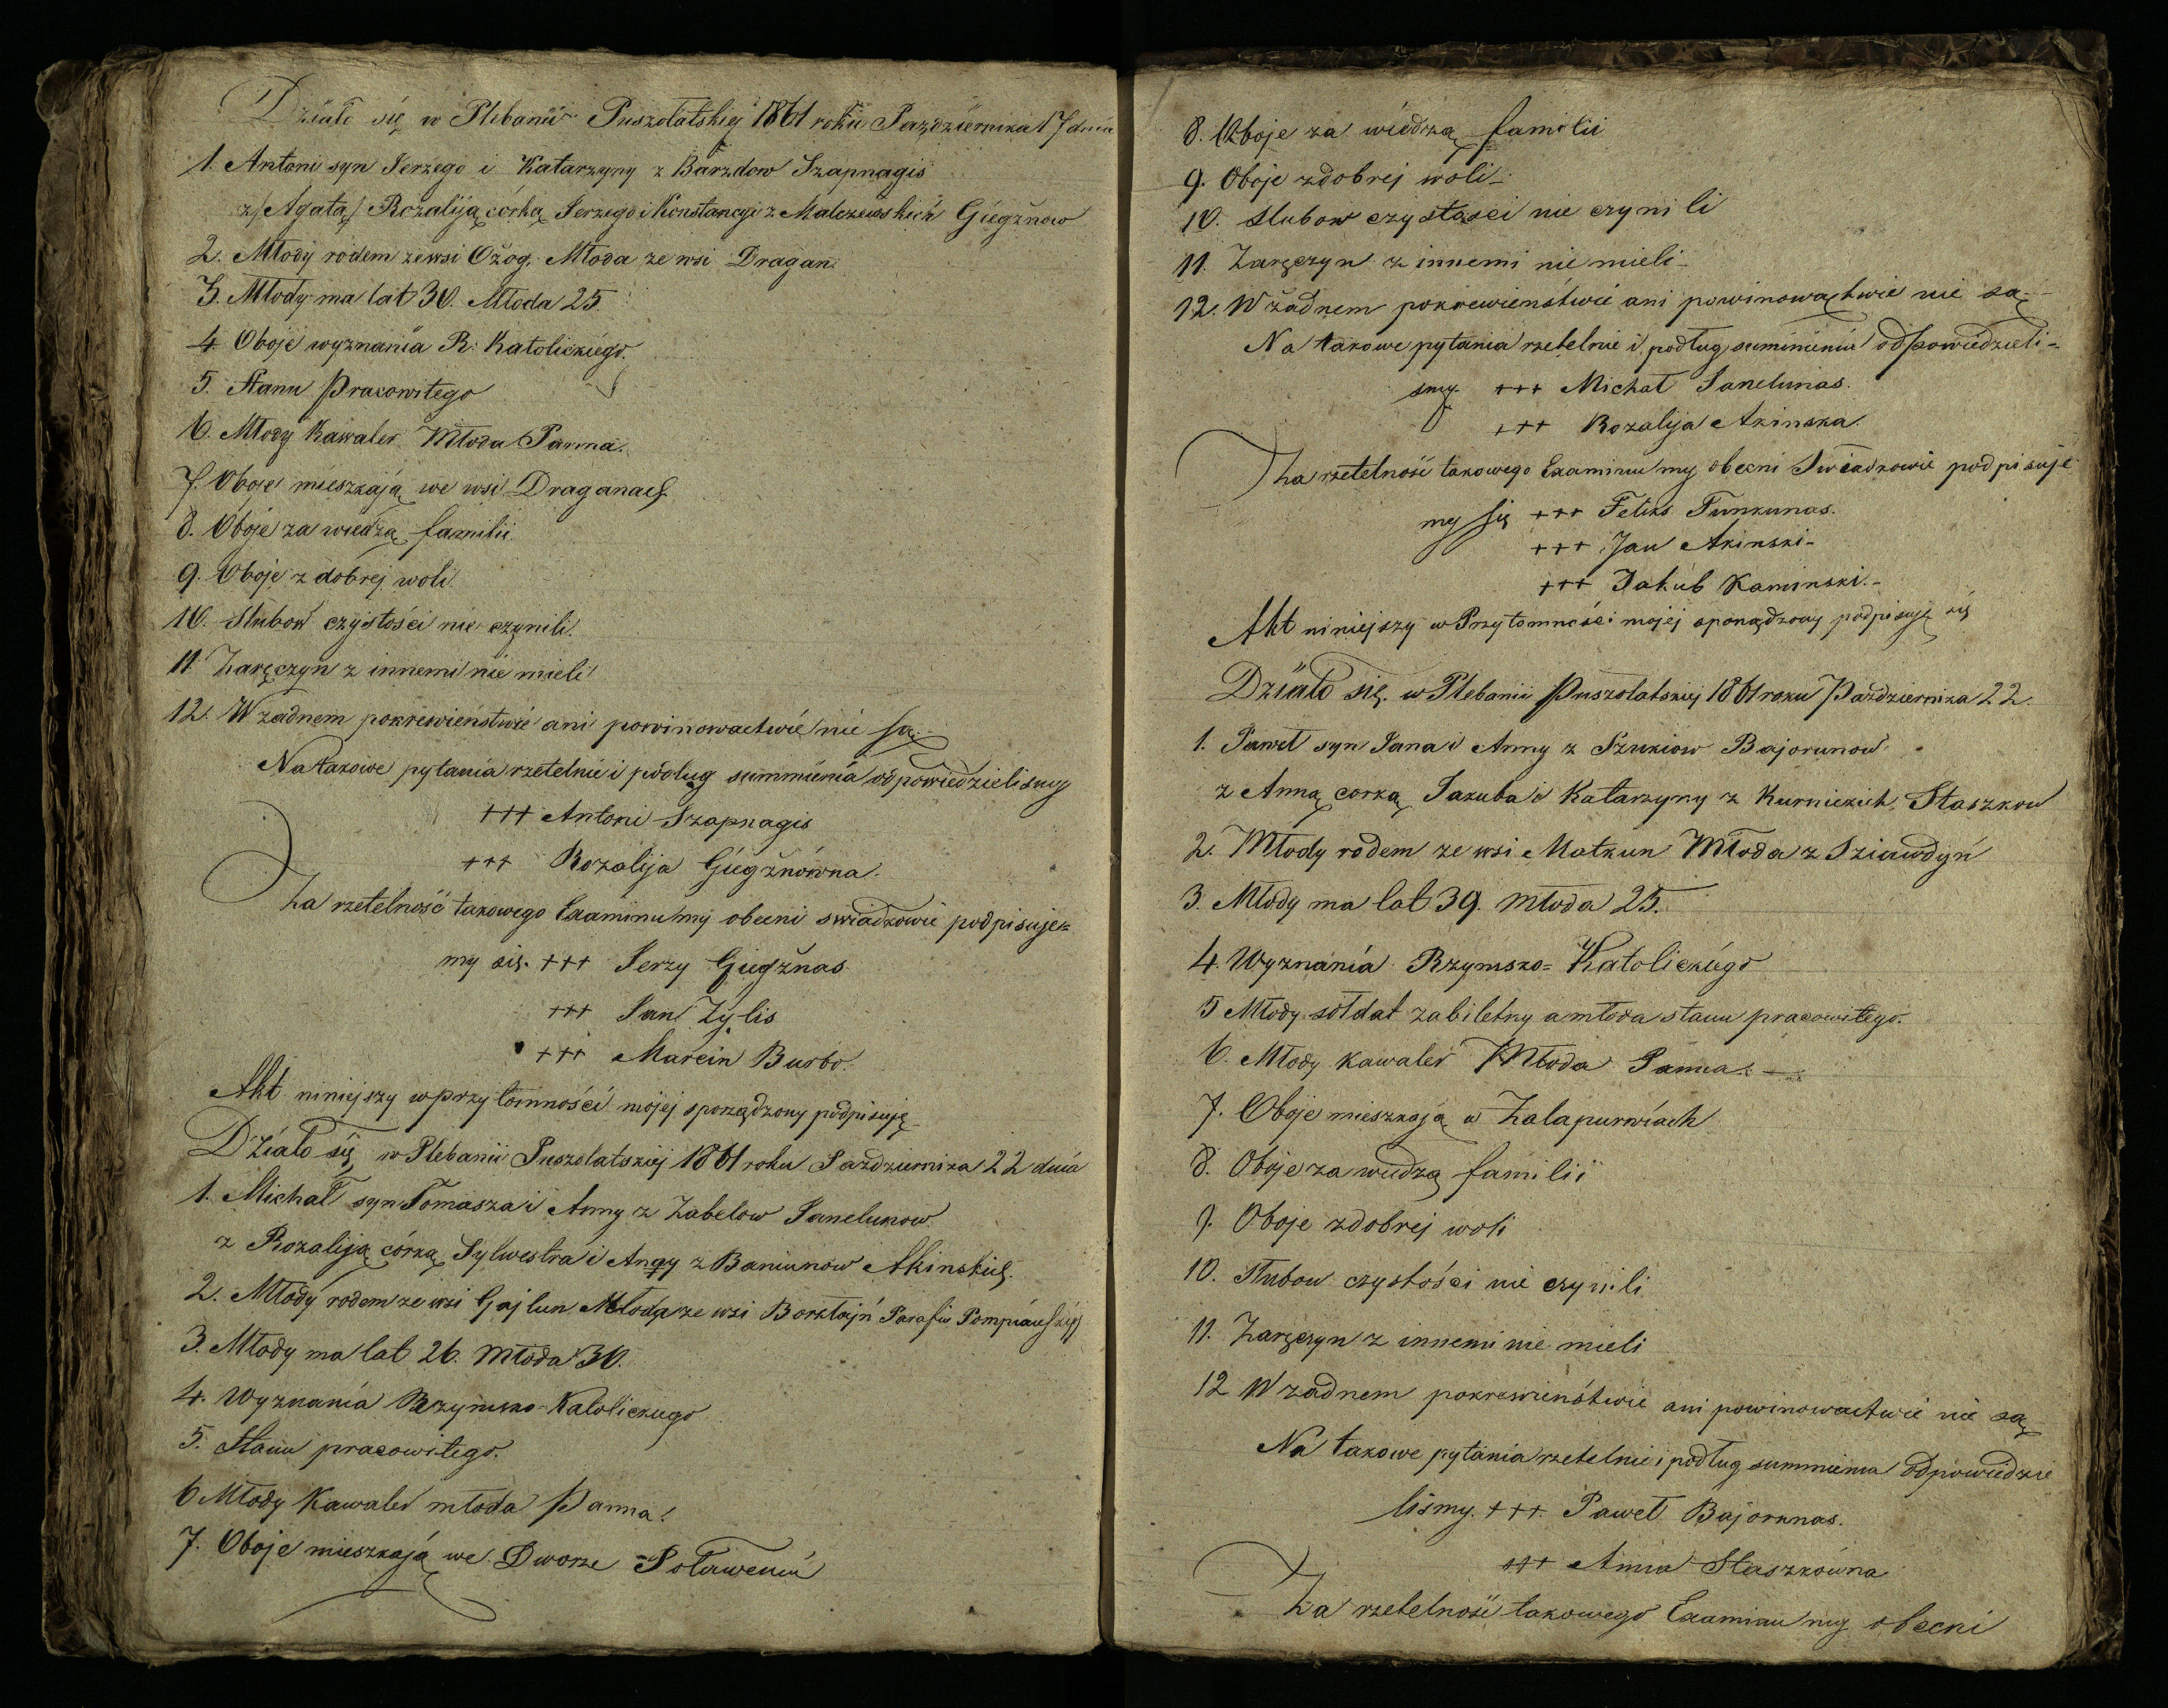 Działo się w Plebanii Puszołatskiej 1861 roku Października 17 dnia
1. Antoni syn Jerzego i Katarzyny z Barzdow Szapnagis
z /Agatą/ Rozaliją córką Jerzego i Konstancyi z Malczewskich Giegżnow
2. Młody rodem ze wsi Ożog. Młoda ze wsi Dragan.
3. Młody ma lat 30. Młoda 25.
4. Oboje wyznania R: Katolickiego.
5. Stanu Pracowitego
6. Młody Kawaler Młoda Panna.
7. Oboje mieszkają we wsi Draganach.
8. Oboje za wiedzą familii.
9. Oboje z dobrej woli.
10. Slubow czystości nie czynili.
11 Zaręczyn z innemi nie mieli
12. W żadnem pokrewieństwie ani powinowactwie nie są.
Na takowe pytania rzetelnie i podług summienia odpowiedzielismy
+++ Antoni Szapnagis
+++ Rozalija Giegżnówna.
Za rzetelność takowego Examinu my obecni swiadkowie podpisuje=
my się. +++ Jerzy Giegżnas
+++ Jan Żylis
+++ Marcin Burbo.
Akt niniejszy w przytomności mojej sporządzony podpisuję
Działo się w Plebanii Puszołatskiej 1861 roku Pazdziernika 22 dnia
1. Michał syn Tomasza i Anny z Zabelow Janelunow
z Rozaliją córką Sylwestra i Anny z Baniunow Akinskich.
2. Młody rodem ze wsi Gajlun Młoda ze wsi Borklojń Parafii Pompiańskiej
3. Młody ma lat 26. Młoda 30.
4. Wyznania Rzymsko-Katolickiego
5. Stanu pracowitego.
6 Młody Kawaler młoda Panna.
7. Oboje mieszkają we Dworze
8. Oboje za wiedzą familii
9. Oboje z dobrej woli
10. Slubow czystości nie czynili
11. Zaręczyn z innemi nie mieli
12. W żadnem pokrewieństwie ani powinowactwie nie są
Na takowe pytania rzetelnie i podług summieniu odpowiedzieli=
smy +++ Michał Janelunas.
+++ Rozalija Akinska.
Za rzetelność takowego Examinu my obecni Swiadkowie podpisuje
my się +++ Feliks Tunkunas.
+++ Jan Akinski
+++ Jakub Kaminski.
Akt niniejszy w Przytomności mojej sporządzony podpisuję się
Działo się. w Plebanii Puszolatskiej 1861 roku Pazdziernika 22.
1. Paweł syn Jana i Anny z Szukiow Bajorunow
z Anną corką Jakuba i Katarzyny z Kurnickich Staszkow
2. Młody rodem ze wsi Matkun Młoda z Sziawdyń
3. Młody ma lat 39. młoda 25.
4. Wyznania Rzymsko= Katolickiego
5 Młody sołdat zabiletny a młoda stanu pracowitego.
6. Młody kawaler Młoda Panna.
7. Oboje mieszkają w Zalapurwiach
8. Oboje za wiedzą familii
9. Oboje z dobrej woli
10. Slubow czystości nie czynili
11. Zaręczyn z innemi nie mieli
12 W żadnem pokrewieństwie ani powinowactwie nie są
Na takowe pytania rzetelnie i podług summienia odpowiedzie
liśmy. +++. Paweł Bajorunas.
+++ Anna Staszkówna
Za rzetelność takowego Examinu my obecni